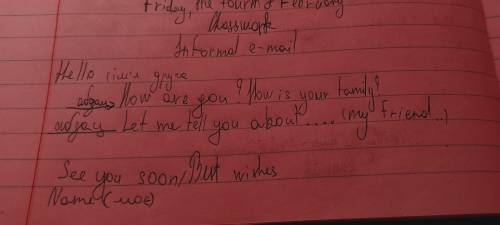 Friday, the fourth of February
Classwork
Informal e-mail
Hello имя друга
How are you? How is your family?
абзац Let me tell you about.... (my friend..)
See you soon/Best wishes
Name (моё)